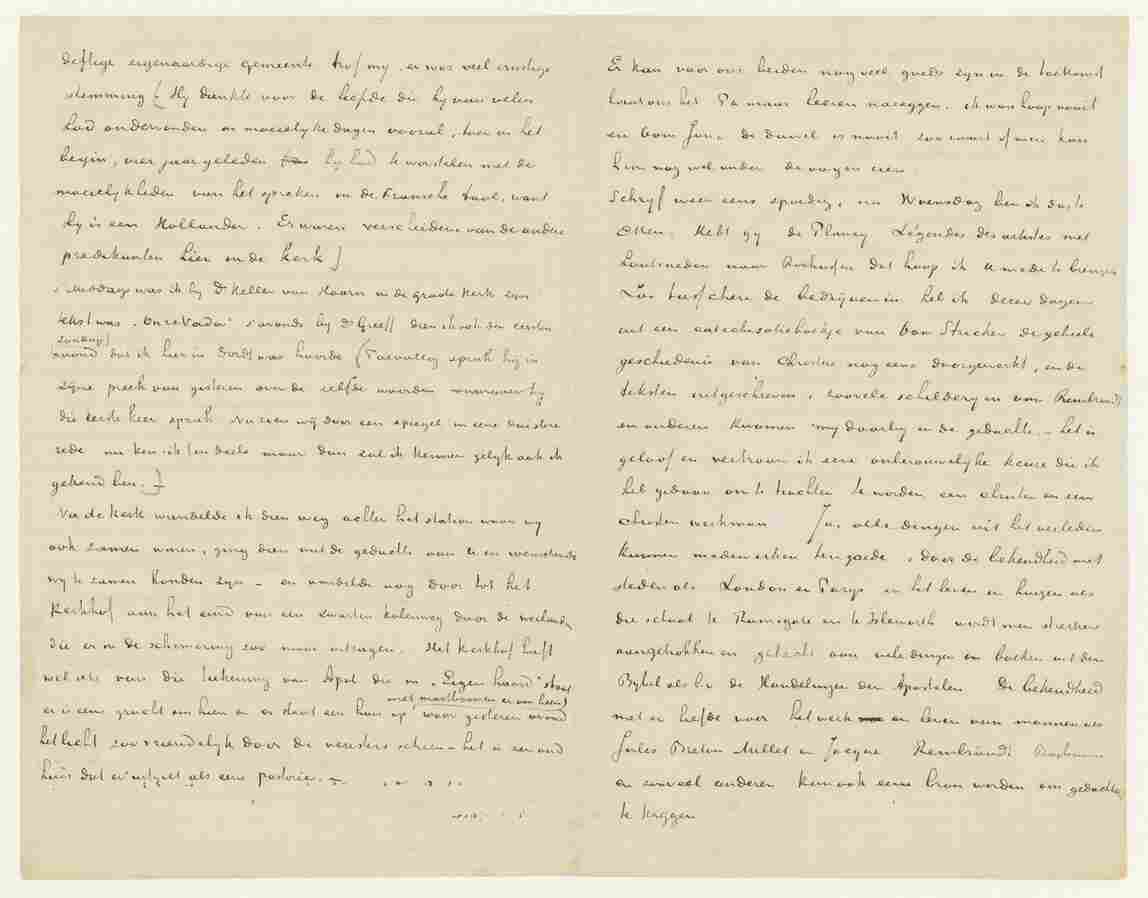 deftige eigenaardige gemeente trof my, er was veel ernstige
stemming (Hy dankte voor de liefde die hy van velen
had ondervonden in moeielyke dagen vooral, toen in het
begin, vier jaar geleden hy had te worstelen met de
moeielykheden van het spreken in de Fransche taal, want
hy is een Hollander. Er waren verscheidene van de andere
predikanten hier in de kerk)
s'middags was ik by Ds Keller van Hoorn in de groote kerk zyn
tekst was "Onze Vader" s'avonds by Ds Greeff dien ik ook den eersten
zondag
avond dat ik hier in Dordt was hoorde (Toevallig sprak hij in
zyne preek van gisteren over de zelfde woorden waarover hy
die eerste keer sprak Nu zien wij door een spiegel in eene duistere
rede nu ken ik ten deele maar dan zal ik kennen gelyk ook ik
gekend ben.)
Na de kerk wandelde ik dien weg achter het station waar wy
ook samen waren, ging dien met de gedachte aan U en wenschende
wy te zamen konden zyn – en wandelde nog door tot het
Kerkhof aan het eind van een zwarten kolenweg door de weilanden
die er in de schemering zoo mooi uitzagen. Het Kerkhof heeft
wel iets van die teekening van Apol die in "Eigen haard" staat
er is eene gracht om heen en er staat een huis op met mastboomen er om heen, waar gisteren avond
het licht zoo vriendelyk door de vensters scheen – het is een oud
huis dat er uitziet als eene pastorie. –
Er kan voor ons beiden nog veel goeds zyn in de toekomst
laat ons het Pa maar leeren nazeggen "ik wanhoop nooit
en Oom Jan "de duivel is nooit zoo zwart of men kan
hem nog wel onder de oogen zien.
Schryf weer eens spoedig, nu Woensdag ben ik dag te
Etten. Hebt gy de Plancy Légendes des artistes met
houtsneden naar Rochussen dat hoop ik U mede te brengen
Zoo tusschen de bedrijven in heb ik dezer dagen
uit een catechisatieboekje van Oom Stricker de geheele
geschiedenis van Christus nog eens doorgewerkt, en de
teksten uitgeschreven, zoovele schilderyen van Rembrandt
en anderen kwamen my daarby in de gedachte. – het is
geloof en vertrouw ik eene onberouwelyke keuze die ik
heb gedaan om te trachten te worden een christen en een
christen werkman Ja, alle dingen uit het verleden
kunnen medewerken ten goede, door de bekendheid met
steden als Londen en Parys en het leven in huizen als
die school te Ramsgate en te Isleworth wordt men sterker
aangetrokken en gehecht aan vele dingen en boeken uit den
Bybel als b.v. de Handelingen der Apostelen. De bekendheid
met en liefde voor het werk en leven van mannen als
Jules Breton Millet en Jacque Rembrandt
en zooveel anderen kan ook eene bron worden om gedachten
te krygen